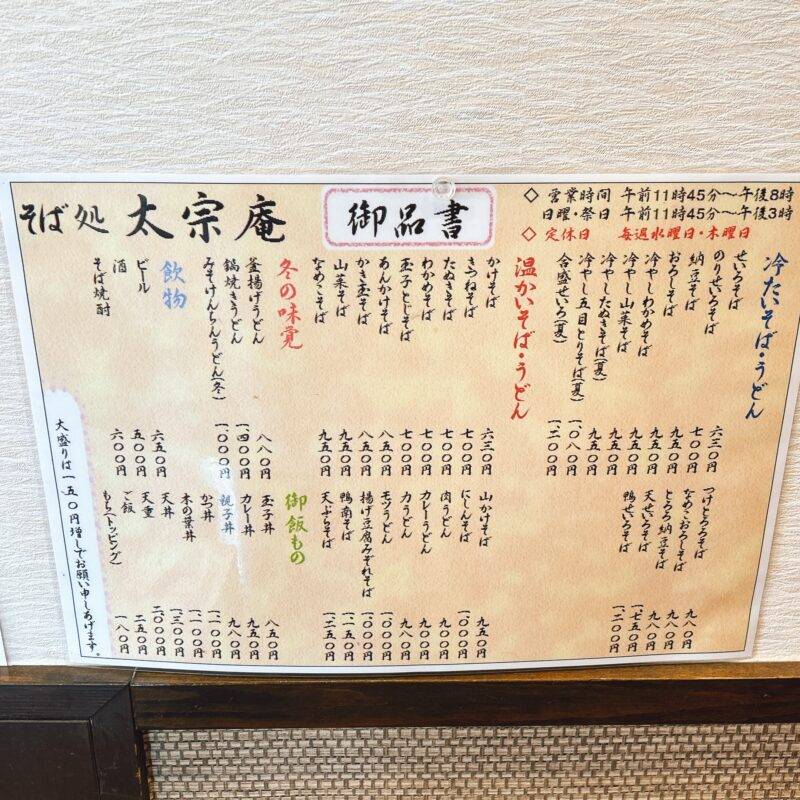 そば処 太宗庵
御品書
◇ 営業時間 午前11時45分〜午後8時
日曜・祭日 午前11時45分〜午後3時
◇ 定休日 毎週水曜日・木曜日
冷たいそば・うどん
せいろそば 六三〇円
のりせいろそば 九五〇円
納豆そば 九五〇円
おろしそば 九五〇円
冷やしわかめそば 九五〇円
冷やし山菜そば 九五〇円
冷やしたぬきそば(夏) 九五〇円
冷やし五目とりそば(夏) 一、〇八〇円
合盛せいろ(夏) 一、二〇〇円
つけとろろそば 九八〇円
なめこおろしそば 九八〇円
とろろ納豆そば 九八〇円
天せいろそば 一、七五〇円
鴨せいろそば 一、二〇〇円
温かいそば・うどん
かけそば 六三〇円
きつねそば 七〇〇円
たぬきそば 七〇〇円
わかめそば 七〇〇円
玉子とじそば 七〇〇円
あんかけそば 八五〇円
かき玉そば 八五〇円
山菜そば 九五〇円
なめこそば 九五〇円
山かけそば 九五〇円
にしんそば 一、〇〇〇円
肉うどん 九〇〇円
カレーうどん 九八〇円
力うどん 九八〇円
モツうどん 一、〇〇〇円
揚げ豆腐みぞれそば 一、〇〇〇円
鴨南そば 一、一五〇円
天ぷらそば 一、二五〇円
冬の味覚
釜揚げうどん 八八〇円
鍋焼きうどん 一、四〇〇円
みそけんちんうどん(冬) 一、〇〇〇円
御飯もの
玉子丼 八五〇円
カレー丼 九五〇円
親子丼 九八〇円
かつ丼 一、一〇〇円
木の葉丼 一、一〇〇円
天丼 一、三〇〇円
天重 二、〇〇〇円
ご飯 二五〇円
もち(トッピング) 一八〇円
飲物
ビール 六五〇円
酒 五〇〇円
そば焼酎 六〇〇円
大盛りは一五〇円増しでお願い申しあげます。